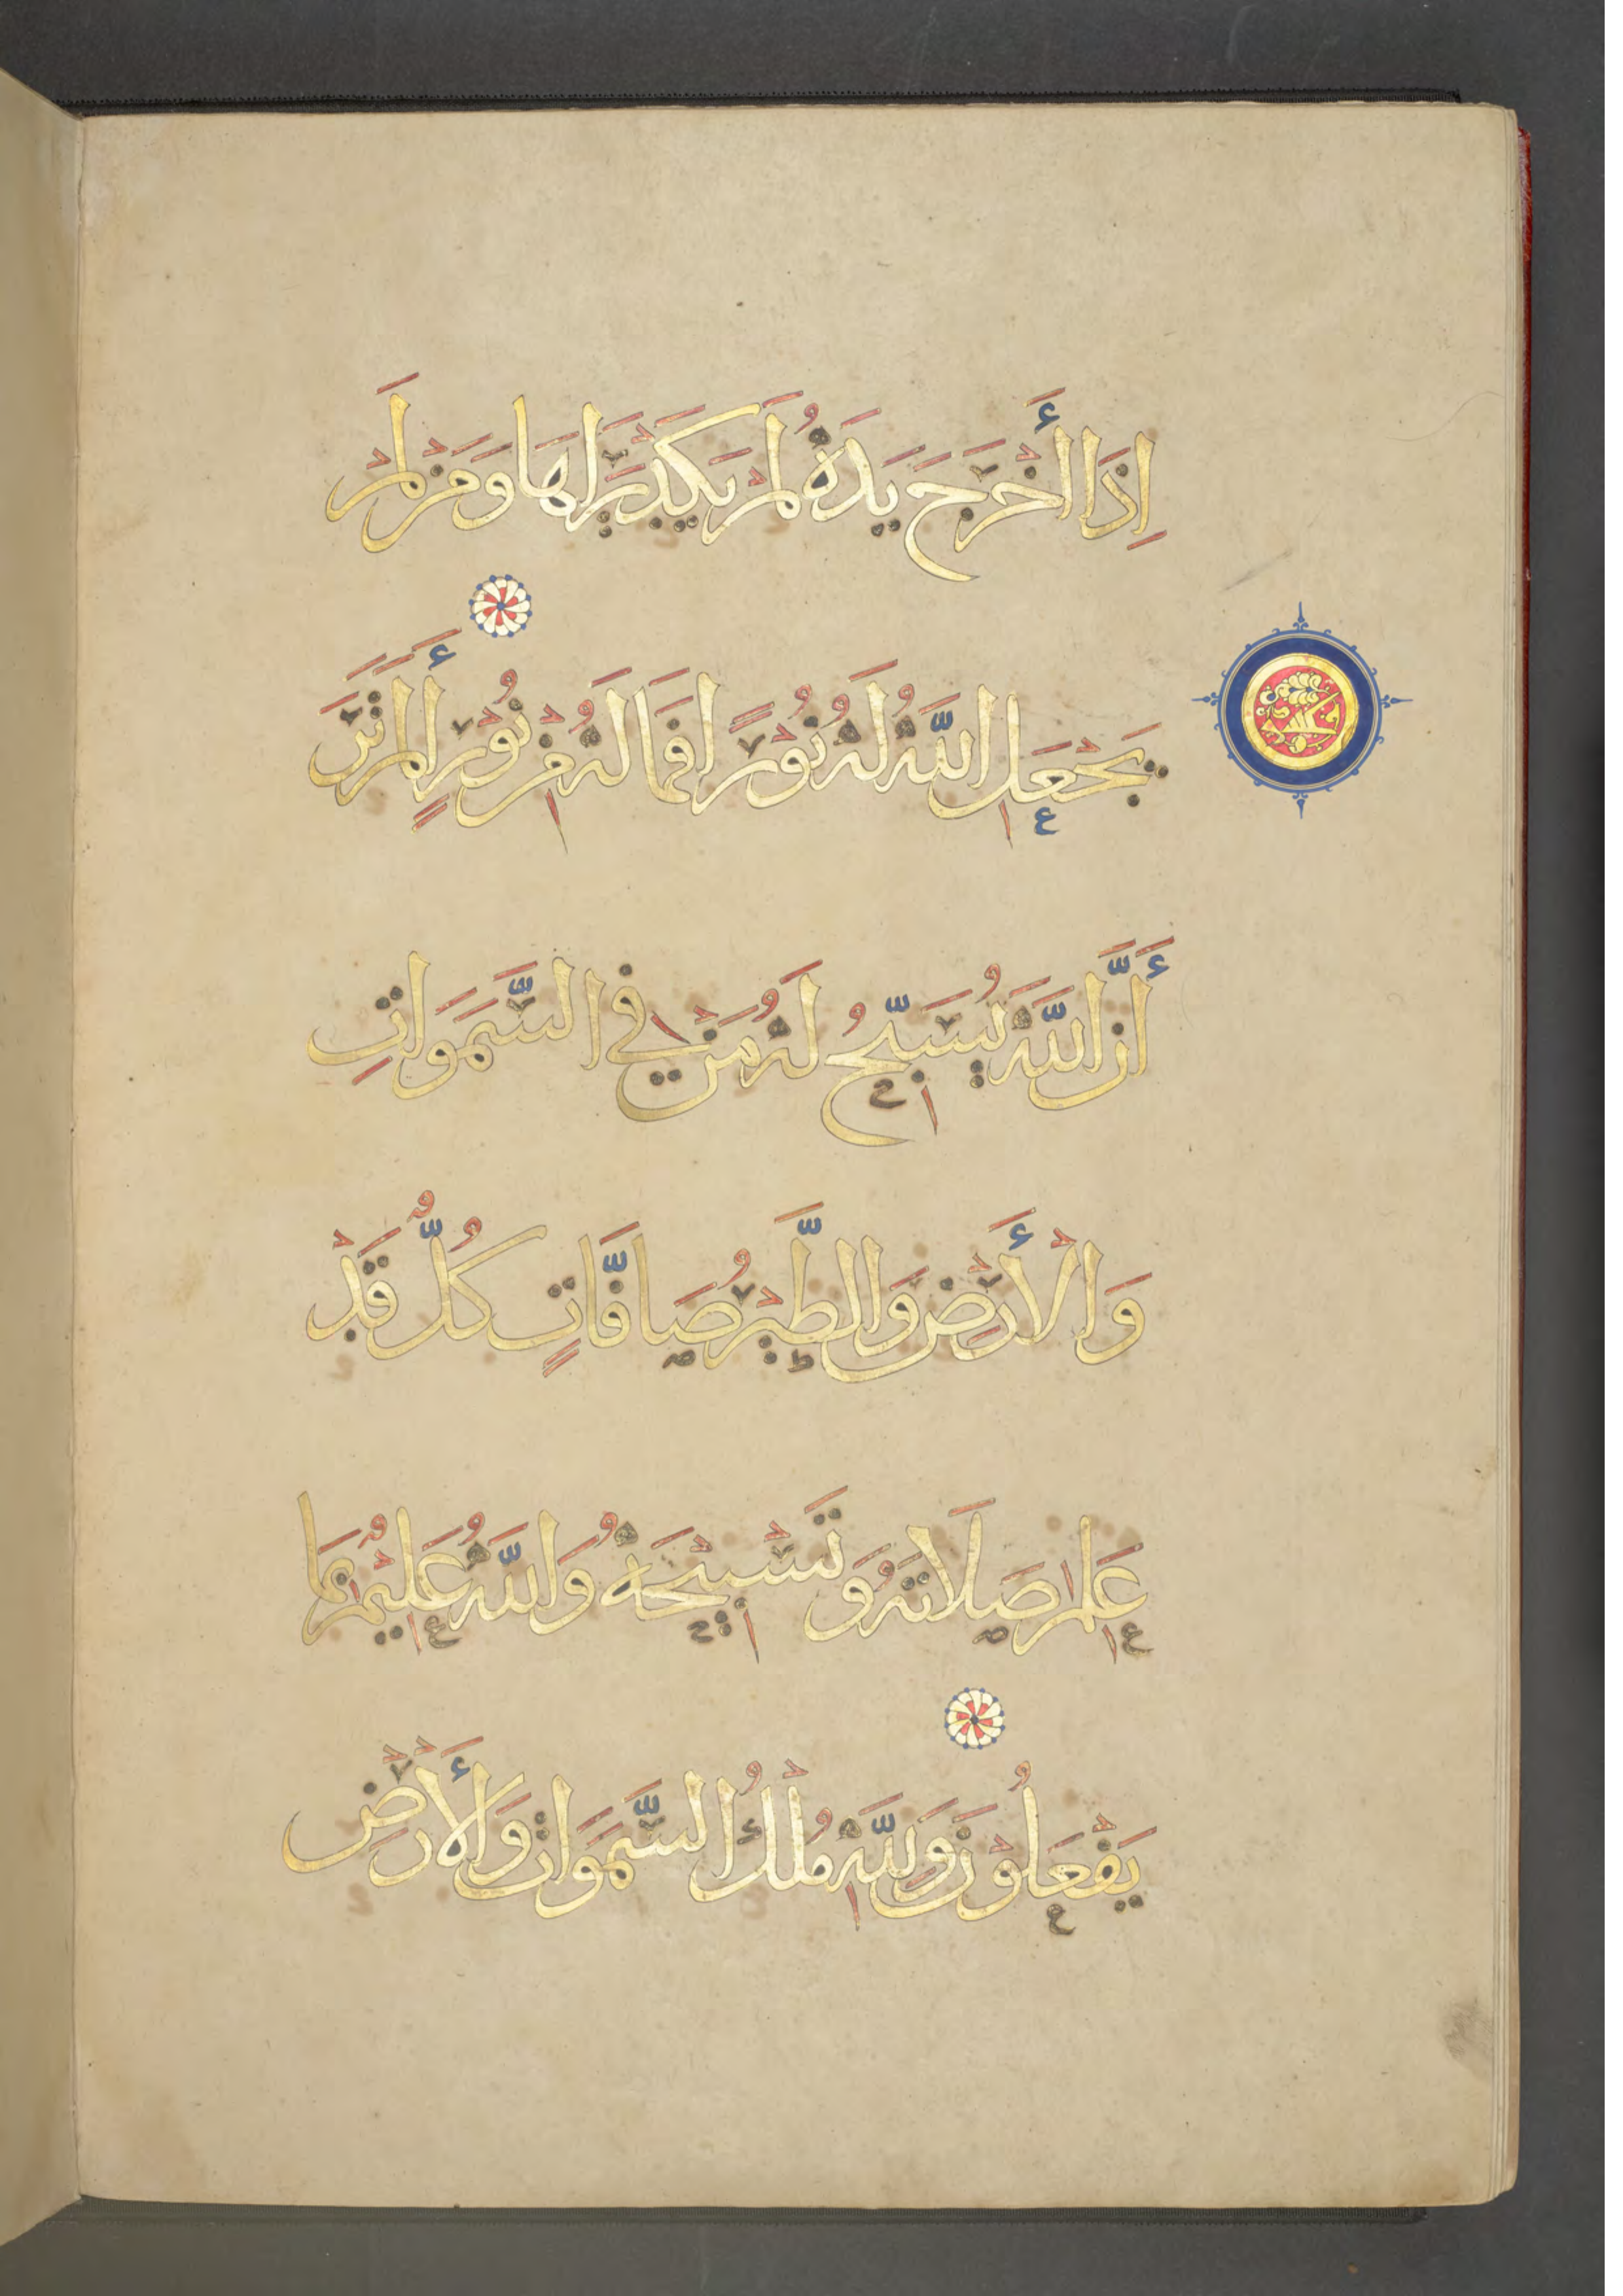 اِذَا أَخْرَجَ يَدَهُ لَمْ يَكَدْ يَرَاهَا وَمَنْ لَمْ
يَجْعَلِ اللَّهُ لَهُ نُوْرًا فَمَا لَهُ مِنْ نُوْرٍ أَلَمْ تَرَ
أَنَّ اللَّهَ يُسَبِّحُ لَهُ مَنْ فِي السَّمَوَاتِ
وَالْأَرْضِ وَالطَّيْرُ صَافَّاتٍ كُلٌّ قَدْ
عَلِمَ صَلَاتَهُ وَتَسْبِيْحَهُ وَاللَّهُ عَلِيْمٌ بِمَا
يَفْعَلُوْنَ وَلِلَّهِ مُلْكُ السَّمَوَاتِ وَالْأَرْضِ